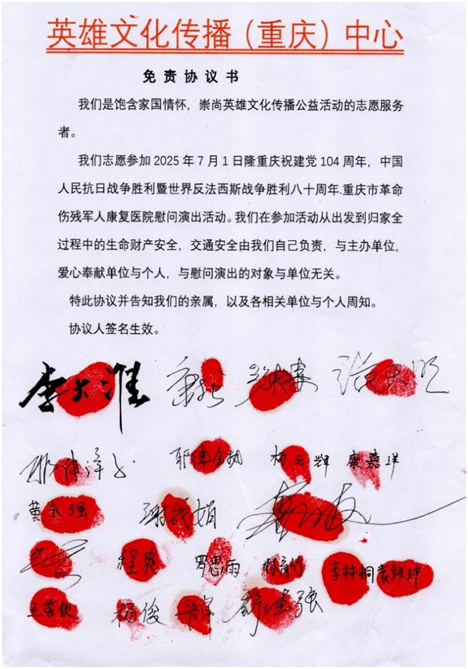 英雄文化传播（重庆）中心
免责协议书
我们是饱含家国情怀，崇尚英雄文化传播公益活动的志愿服务
者。
我们志愿参加 2025 年 7 月 1 日隆重庆祝建党 104 周年，中国
人民抗日战争胜利暨世界反法西斯战争胜利八十周年.重庆市革命
伤残军人康复医院慰问演出活动。我们在参加活动从出发到归家全
过程中的生命财产安全，交通安全由我们自己负责，与主办单位，
爱心奉献单位与个人，与慰问演出的对象与单位无关。
特此协议并告知我们的亲属，以及各相关单位与个人周知。
协议人签名生效。
李大淮
杨云辉
黄永强
程爽 罗思雨 李林桐
杨俊